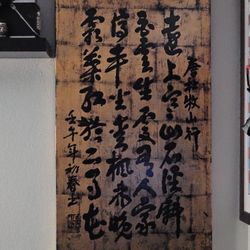 唐杜牧山行
遠上寒山石徑斜
白雲生處有人家
停車坐愛楓林晚
霜葉紅於二月花
壬午年初春書